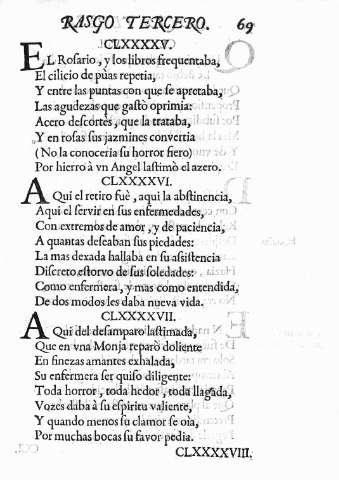 RASGO TERCERO. 69
CLXXXXV.
EL Rosario, y los libros frequentaba,
El cilicio de pùas repetia,
Y entre las puntas con que ſe apretaba,
Las agudezas que gaſtò oprimia:
Acero deſcortès, que la trataba,
Y en roſas ſus jazmines convertia
(No la conoceria ſu horror fiero)
Por hierro à vn Angel laſtimò el azero.
CLXXXXVI.
AQui el retiro fuè, aqui la abſtinencia,
Aqui el ſervir en ſus enfermedades,
Con extremos de amor, y de paciencia,
A quantas deſeaban ſus piedades:
La mas dexada hallaba en ſu aſsiſtencia
Diſcreto eſtorvo de ſus ſoledades:
Como enfermera, y mas como entendida,
De dos modos les daba nueva vida.
CLXXXXVII.
AQui del deſamparo laſtimada,
Que en vna Monja reparò doliente
En finezas amantes exhalada,
Su enfermera ſer quiſo diligente:
Toda horror, toda hedor, toda llagada,
Vozes daba à ſu eſpiritu valiente,
Y quando menos ſu clamor ſe oìa,
Por muchas bocas ſu favor pedia.
CLXXXXVIII.